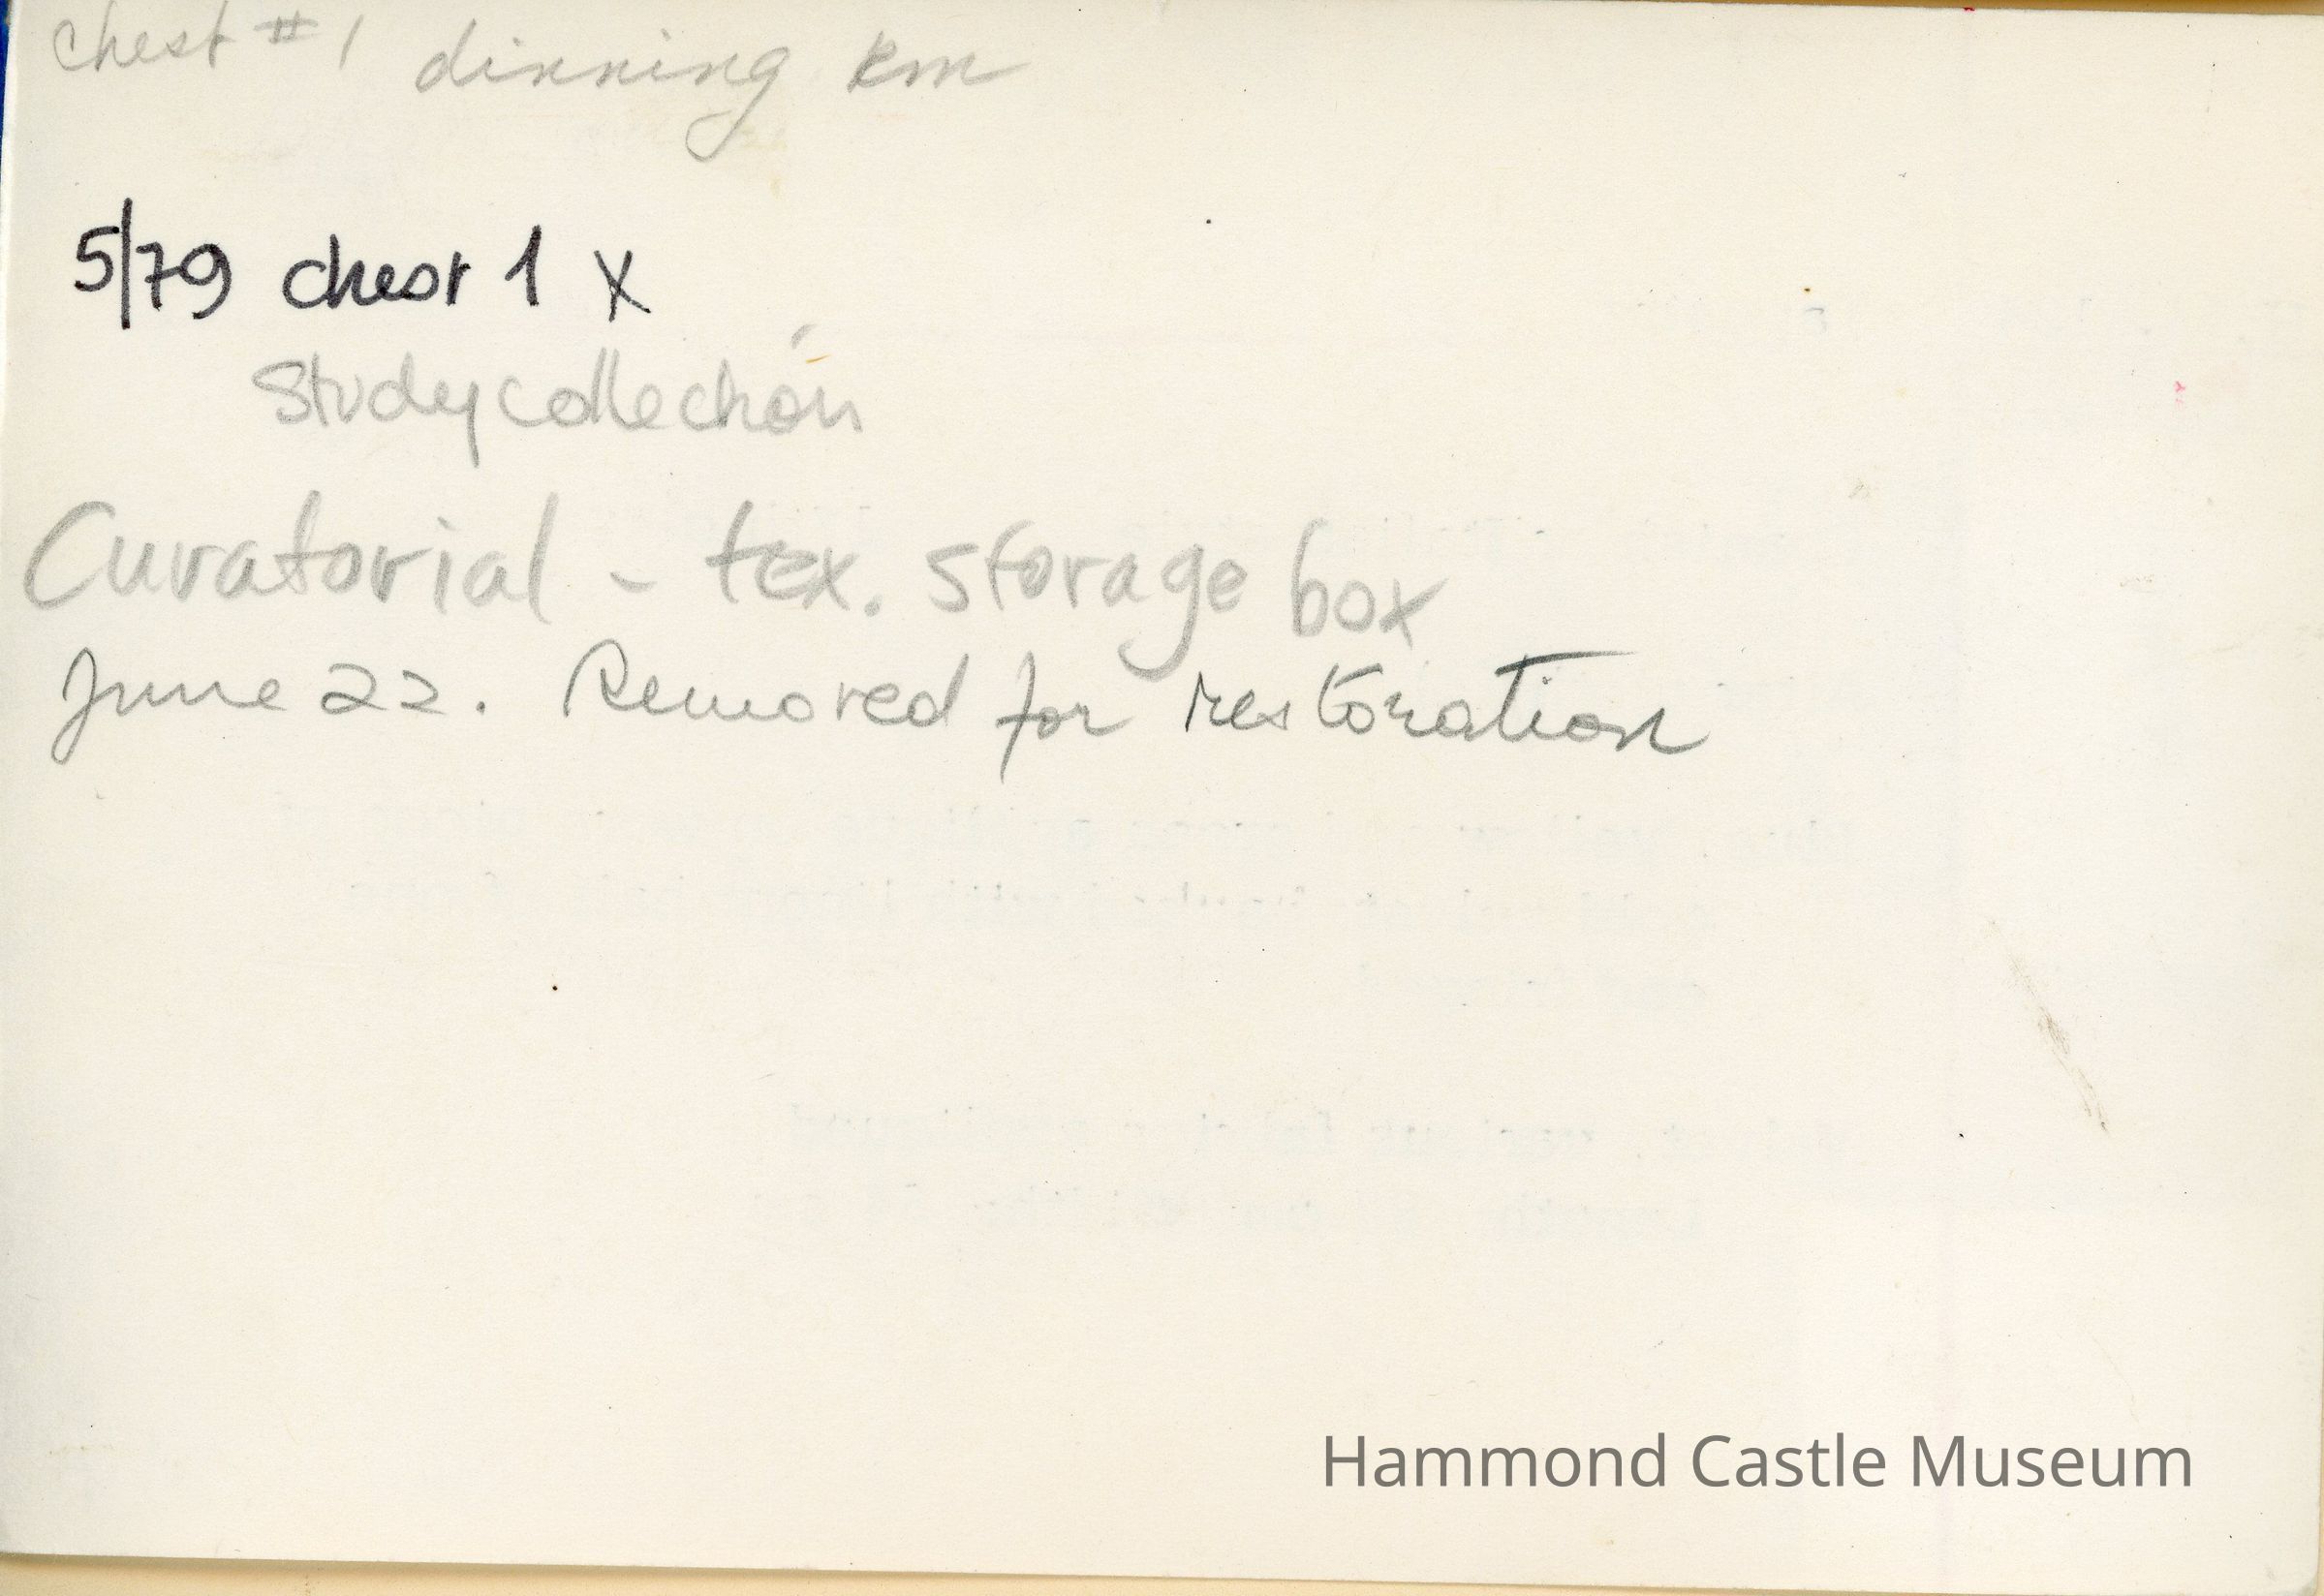 chest #1 dinning Rm
5/79 chest 1 X
Study collection
Curatorial - tex. storage box
June 22. Removed for restoration
Hammond Castle Museum